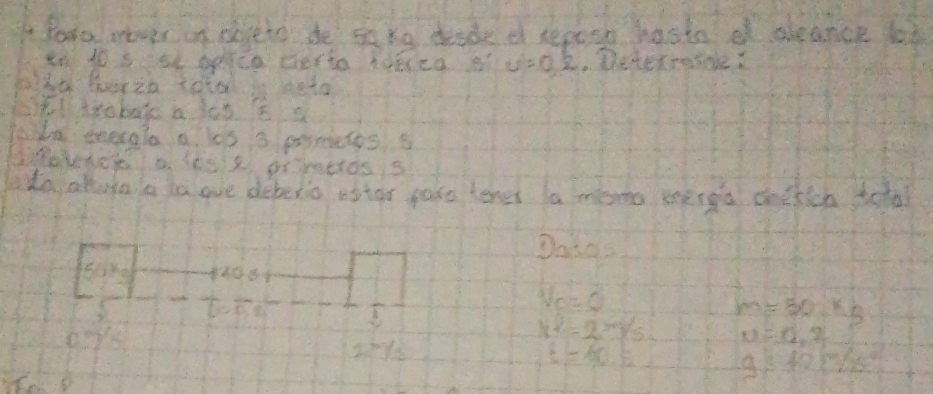 Para mover un objeto de 50 kg desde el reposo hasta el alcance los
en 10 s se aplica cierta fuerza si u=0,2. Determine:
La fuerza total y neta
El trabajo a los 5 s
La energía a los 3 primeros s
Potencia a los 2 primeros s
La altura a la que debería estar para tener la misma energía cinética total
Datos
50kg
V0=0 m=50 kg
Vf=2m/s u=0,2
t=10 s g=10m/s²
0m/s 2m/s